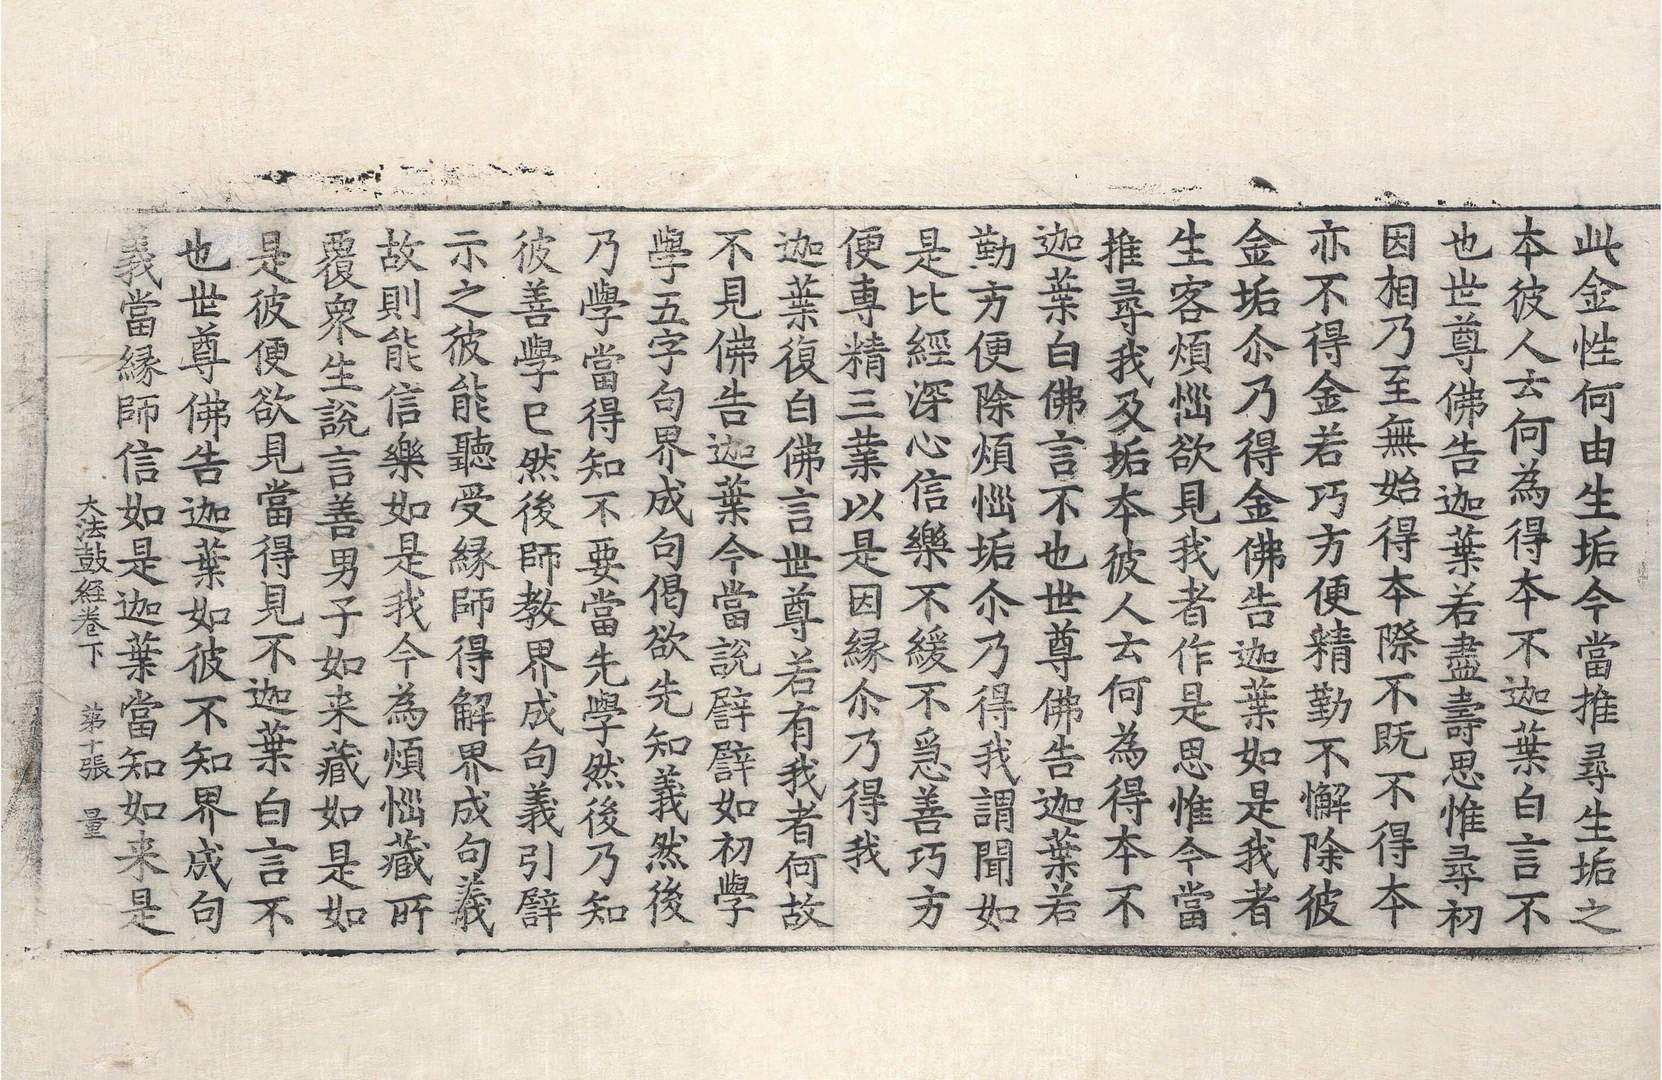 此金性何由生垢今當推尋生垢之
本彼人云何為得本不迦葉白言不
也世尊佛告迦葉若盡壽思惟尋初
因相乃至無始得本際不既不得本
亦不得金若巧方便精勤不懈除彼
金垢尒乃得金佛告迦葉如是我者
生客煩惱欲見我者作是思惟今當
推尋我及垢本彼人云何為得本不
迦葉白佛言不也世尊佛告迦葉若
勤方便除煩惱垢尒乃得我謂聞如
是比經深心信樂不緩不急善巧方
便專精三業以是因縁尒乃得我
迦葉復白佛言世尊若有我者何故
不見佛告迦葉今當說譬譬如初學
學五字句界成句偈欲先知義然後
乃學當得知不要當先學然後乃知
彼善學已然後師教界成句義引譬
示之彼能聽受縁師得解界成句義
故則能信樂如是我今為煩惱藏所
覆衆生說言善男子如来藏如是如
是彼便欲見當得見不迦葉白言不
也世尊佛告迦葉如彼不知界成句
義當縁師信如是迦葉當知如来是
大法鼓經卷下 第十張 量